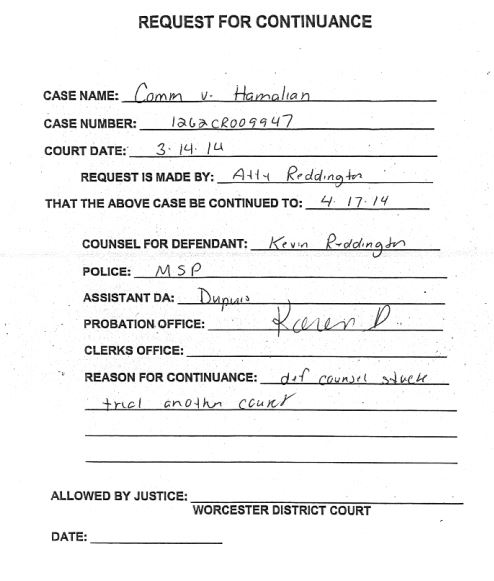 REQUEST FOR CONTINUANCE
CASE NAME: Comm v. Hamalian
CASE NUMBER: 1262CR009947
COURT DATE: 3.14.14
REQUEST IS MADE BY: Atty Reddington
THAT THE ABOVE CASE BE CONTINUED TO: 4.17.14
COUNSEL FOR DEFENDANT: Kevin Reddington
POLICE: MSP
ASSISTANT DA: Dupuis
PROBATION OFFICE: Karen D.
CLERKS OFFICE:
REASON FOR CONTINUANCE: def counsel stuck
trial another court
ALLOWED BY JUSTICE:
WORCESTER DISTRICT COURT
DATE: